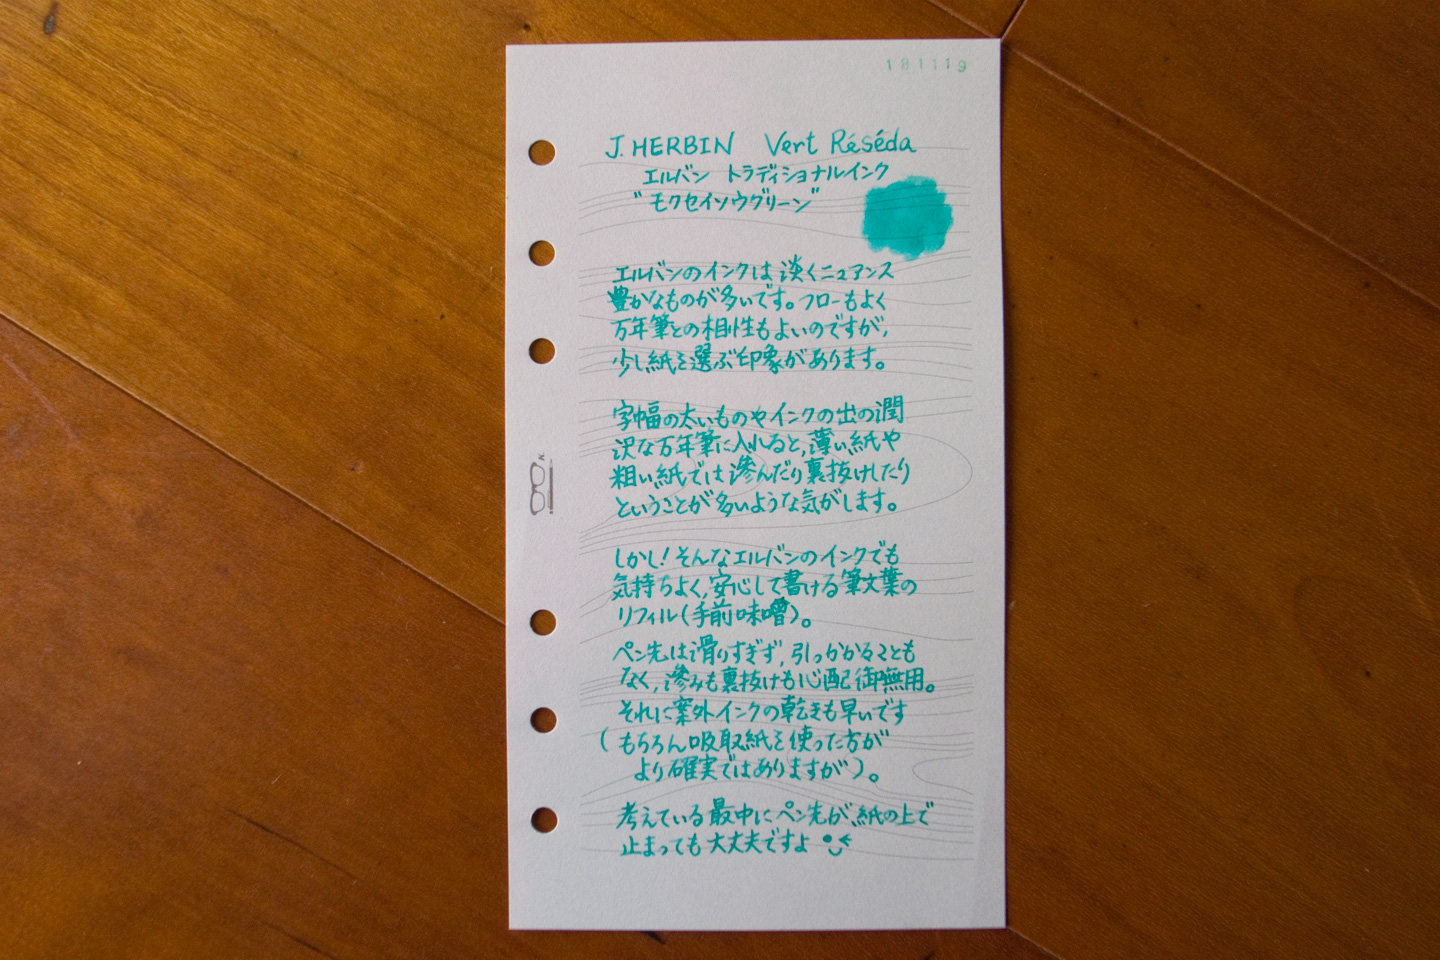 181119
J. HERBIN Vert Réséda
エルバン トラディショナルインク
"モクセイソウグリーン"
エルバンのインクは淡くニュアンス
豊かなものが多いです。フローもよく
万年筆との相性もよいのですが、
少し紙を選ぶ印象があります。
字幅の太いものやインクの出の潤
沢な万年筆に入れると、薄い紙や
粗い紙では滲んだり裏抜けしたり
ということが多いような気がします。
しかし!そんなエルバンのインクでも
気持ちよく、安心して書ける筆文葉の
リフィル(手前味噌)。
ペン先は滑りすぎず、引っかかることも
なく、滲みも裏抜けも心配御無用。
それに案外インクの乾きも早いです
(もちろん吸取紙を使った方が
より確実ではありますが)。
考えている最中にペン先が、紙の上で
止まっても大丈夫ですよ